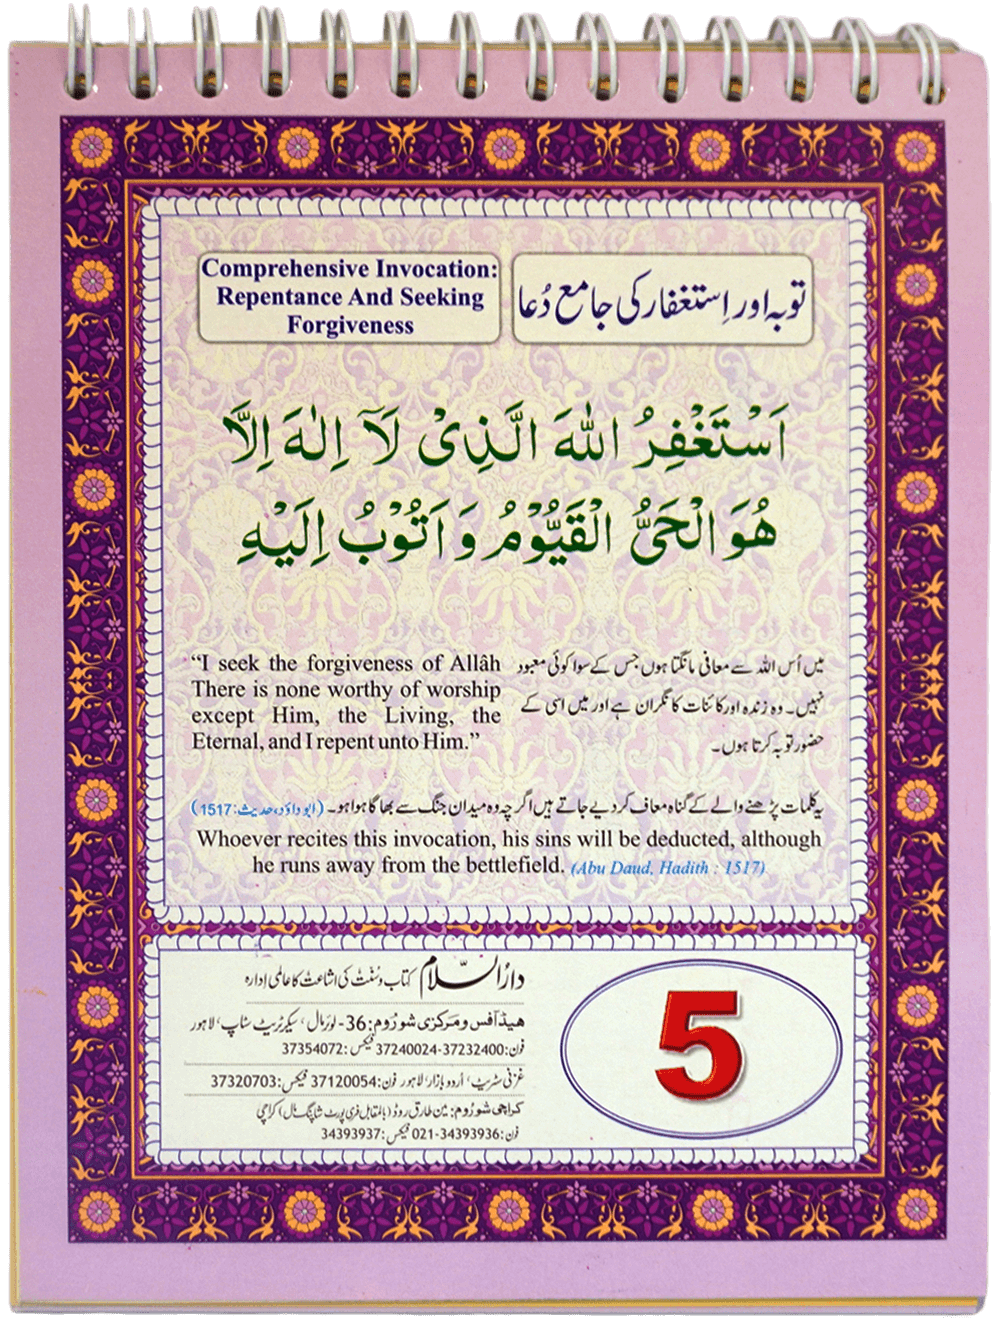 Comprehensive Invocation:
Repentance And Seeking
Forgiveness
توبہ اور اِستغفار کی جامع دُعا
اَسْتَغْفِرُ اللّٰهَ الَّذِىْ لَآ اِلٰهَ اِلَّا
هُوَ الْحَىُّ الْقَيُّوْمُ وَ اَتُوْبُ اِلَيْهِ
“I seek the forgiveness of Allâh
There is none worthy of worship
except Him, the Living, the
Eternal, and I repent unto Him.”
میں اُس اللہ سے معافی مانگتا ہوں جس کے سوا کوئی معبود
نہیں۔ وہ زندہ اور کائنات کا نگران ہے اور میں اسی کے
حضور توبہ کرتا ہوں۔
یہ کلمات پڑھنے والے کے گناہ معاف کر دیے جاتے ہیں اگرچہ وہ میدان جنگ سے بھاگا ہوا ہو۔ (ابو داؤد، حدیث: 1517)
Whoever recites this invocation, his sins will be deducted, although
he runs away from the bettlefield. (Abu Daud, Hadith : 1517)
دارُالسّلام کتاب و سُنّت کی اشاعت کا عالمی اِدارہ
ھیڈ آفس و مرکزی شو رُوم: 36- لوئر مال، سیکرٹریٹ سٹاپ، لاہور
فون: 37232400-37240024 فیکس: 37354072
غزنی سٹریٹ، اُردو بازار، لاہور فون: 37120054 فیکس: 37320703
کراچی شو رُوم: مین طارق روڈ (بالمقابل فری پورٹ شاپنگ مال) کراچی
فون: 34393936-021 فیکس: 34393937
5